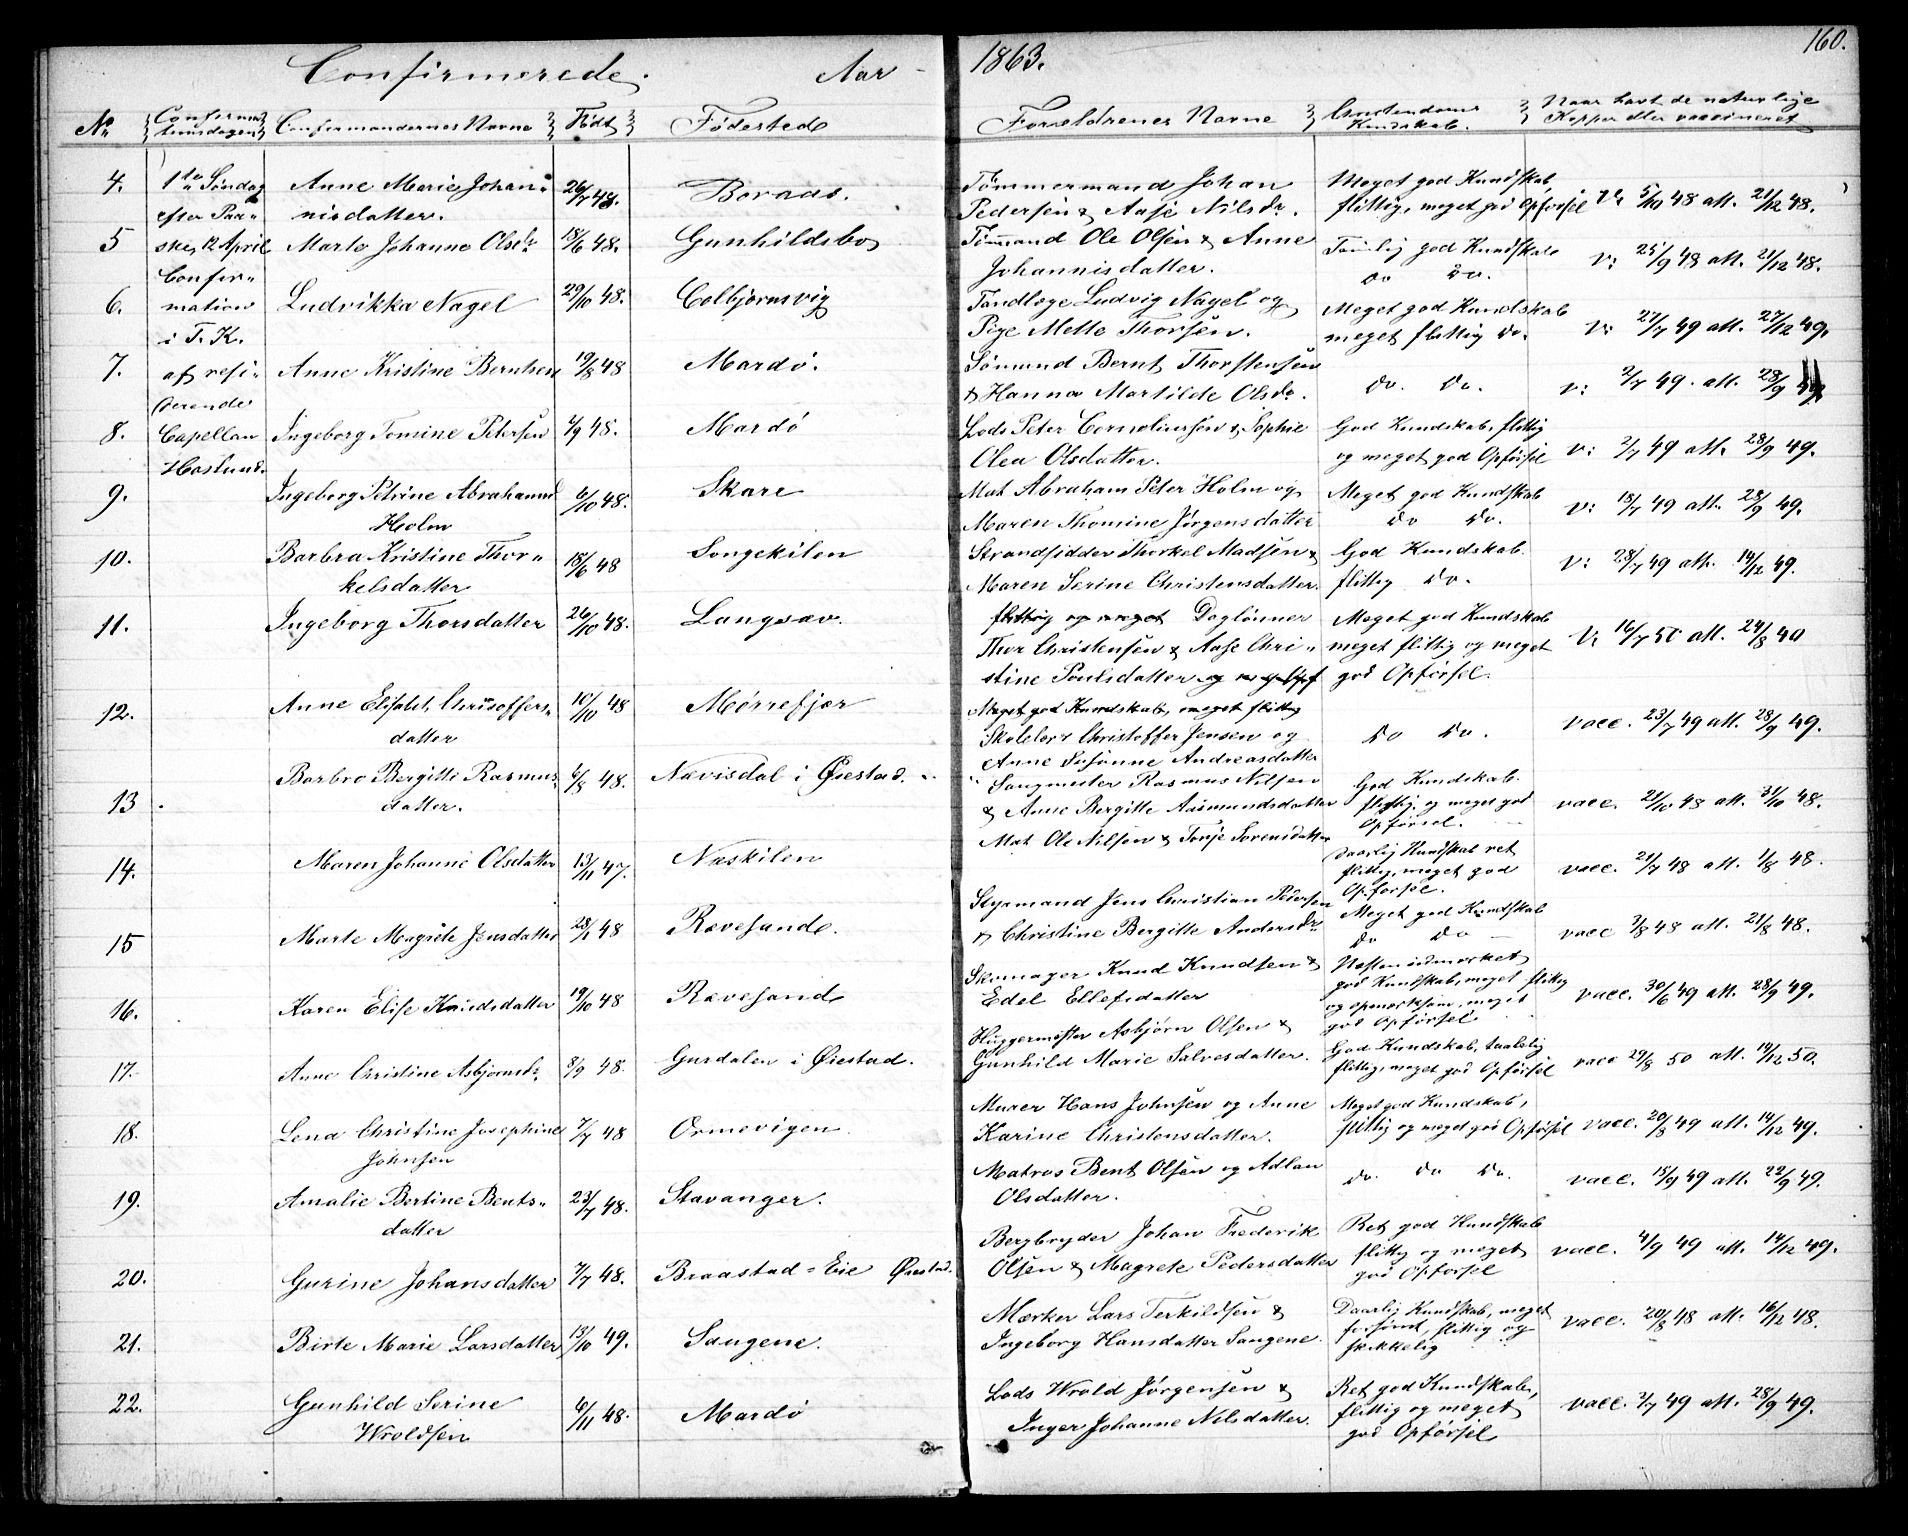 Confirmerede. Aar 1863. 160.
No Confirmationsdagen Confirmandernes Navne Født Fødested Forældrenes Navne Christendoms Kundskab. Naar havt de naturlige Kopper eller vaccineret
1te Søndag efter Paaske, 12 April
Confirmation
i T. K.
af residerende
Capellan
Haslund.
4. Anne Marie Johan- 26/7 48. Boraas. Tømmermand Johan Meget god Kundskab,
nisdatter. Pedersen & Aase Nilsdr. flittig, meget god Opførsel V: 5/10 48 att. 21/12 48.
5 Marte Johanne Olsdr 18/6 48. Gunhildsbo Tømmand Ole Olsen & Anne Temlig god Kundskab
Johannisdatter. do do. V: 25/9 48 att. 21/12 48.
6. Ludvikka Nagel 29/10 48. Colbjornsvig Tandlæge Ludvig Nagel og Meget god Kundskab
Pige Mette Thorsen. meget flittig do. V: 27/7 49 att. 27/12 49.
7. Anne Kristine Berntsen 19/8 48 Mardø. Sömand Bernt Thorstensen
& Hanna Martilde Olsdr. do. do. V: 2/7 49. att. 28/9 49
8. Ingeborg Tomine Petersen 4/9 48. Mardö Lods Peter Corneliussen & Sophie God Kundskab, flittig
Olea Olsdatter. og meget god Opførsel V: 2/7 49 att. 28/9 49.
9. Ingeborg Petrine Abrahamine 6/10 48. Skare Mat Abraham Peter Holm og Meget god Kundskab
Holm Maren Thomine Jørgensdatter do do. V: 18/7 49 att. 28/9 49.
10. Barbra Kristine Thor- 18/6 48 Songekilen Strandsidder Thorkel Madsen & God Kundskab.
kelsdatter Maren Serine Christensdatter. flittig do. V: 28/7 49 att. 14/12 49.
11. Ingeborg Thorsdatter 26/10 48. Langsæv. flittig og meget Daglönner Meget god Kundskab
Thor Christensen & Aase Chri- meget flittig og meget V: 16/7 50 att. 24/8 40
stine Poulsdatter god Opførsel.
12. Anne Elisabet Chrisoffers- 10/10 48 Mørrefjær Meget god Kundskab, meget flittig
datter Skolelær Christoffer Jensen og do do. vacc. 23/7 49 att. 28/9 49.
Anne Susanne Andreasdatter
13. Barbro Bergitte Rasmus- 6/8 48. Nævisdal i Øiestad. Saugmester Rasmus Nilsen God Kundskab.
datter. & Anne Bergitte Aasmundsdatter flittig, og meget god vacc. 21/10 48 att. 31/10 48.
Opførsel.
14. Maren Johanne Olsdatter 13/11 47. Næskilen Mat Ole Nilsen & Tonje Sørensdatter Daarlig Kundskab ret
flittig, meget god vacc. 21/7 48 att. 1/8 48.
Opførsel.
15 Marte Magrete Jensdatter 28/1 48 Rævesande. Styrmand Jens Christian Pedersen Meget god Kundskab
& Christine Bergitte Andersdr. do do vacc 3/8 48 att. 21/8 48.
16. Karen Elise Knudsdatter 19/10 48 Rævesand Skomager Knud Knudsen & Næsten udmærket
Edel Ellefsdatter god Kundskab, meget flittig
og opmærksom, meget vacc. 30/6 49 att. 28/9 49.
god Opførsel.
17. Anne Christine Asbjornsdr. 8/9 48. Gurdalen i Øiestad. Huggermester Asbjörn Olsen & God Kundskab, taalelig
Gunhild Marie Salvesdatter. flittig, meget god Opførsel vacc 29/8 50 att. 19/12 50.
18. Lena Christine Josephine 7/7 48 Ormevigen Murer Hans Johnsen og Anne Meget god Kundskab,
Johnsen Karine Christensdatter. flittig og meget god Opførsel vacc. 20/8 49 att. 14/12 49.
19. Amalie Bertine Bents- 23/7 48. Stavanger. Matros Bent Olsen og Adlau do. do do. vacc. 15/9 49 att. 22/9 49.
datter Olsdatter.
20. Gurine Johansdatter 7/7 48. Braastad-Eie Øiestad. Bergbryder Johan Frederik Ret god Kundskab
Olsen & Magrete Pedersdatter flittig og meget vacc. 4/9 49 att. 14/12 49.
god Opførsel
21. Birte Marie Larsdatter 13/10 49. Saugene. Mærker Lars Terkildsen & Daarlig Kundskab, meget
Ingeborg Hansdatter Saugene. forsømt, flittig og vacc. 20/8 48 att. 16/12 48.
skikkelig
22. Gunhild Serine 6/11 48. Mardö Lods Wrold Jørgensen & Ret god Kundskab,
Wroldsen Inger Johanne Nilsdatter. flittig og meget vacc. 2/7 49 att. 28/9 49.
god Opførsel